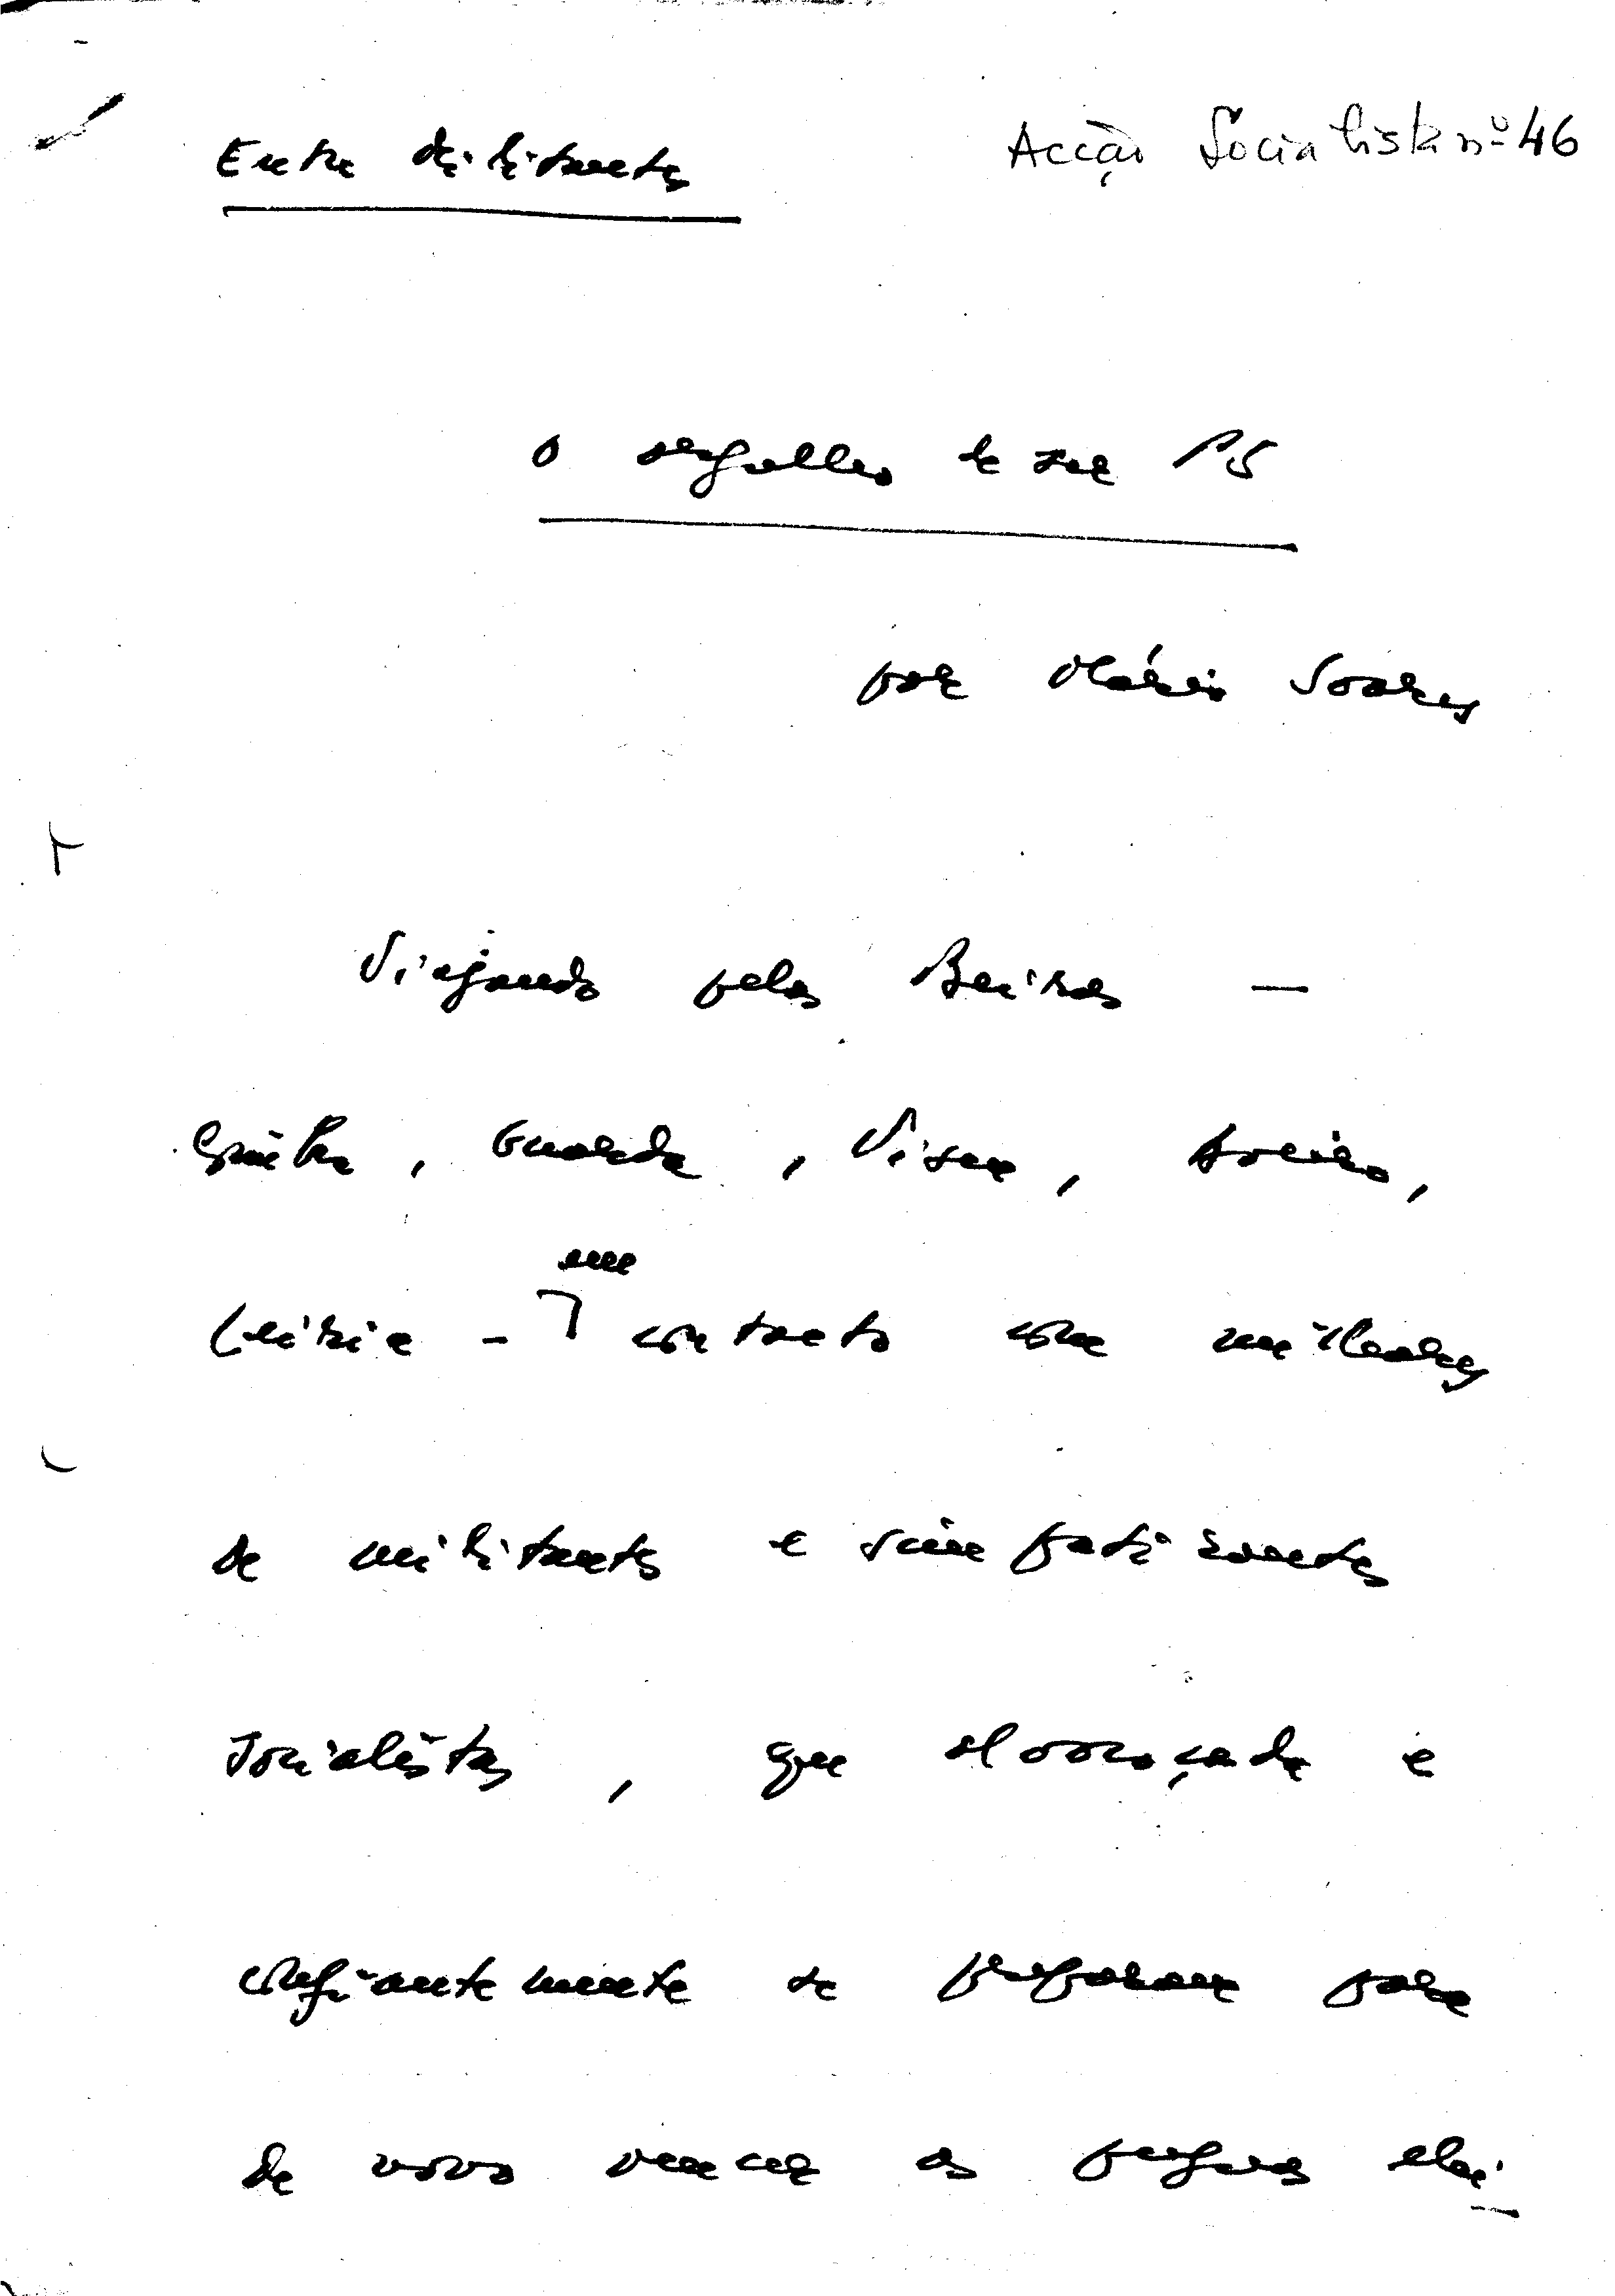 Entre Militantes
Acção Socialista nº 46
O orgulho de ser PS
por Mário Soares
Viajando pelas Beiras —
Coimbra, Guarda, Viseu, Aveiro,
Leiria - em contacto com milhares
de militantes e simpatizantes
socialistas, que
confiantemente se preparam para
de novo vencer as próximas elei-